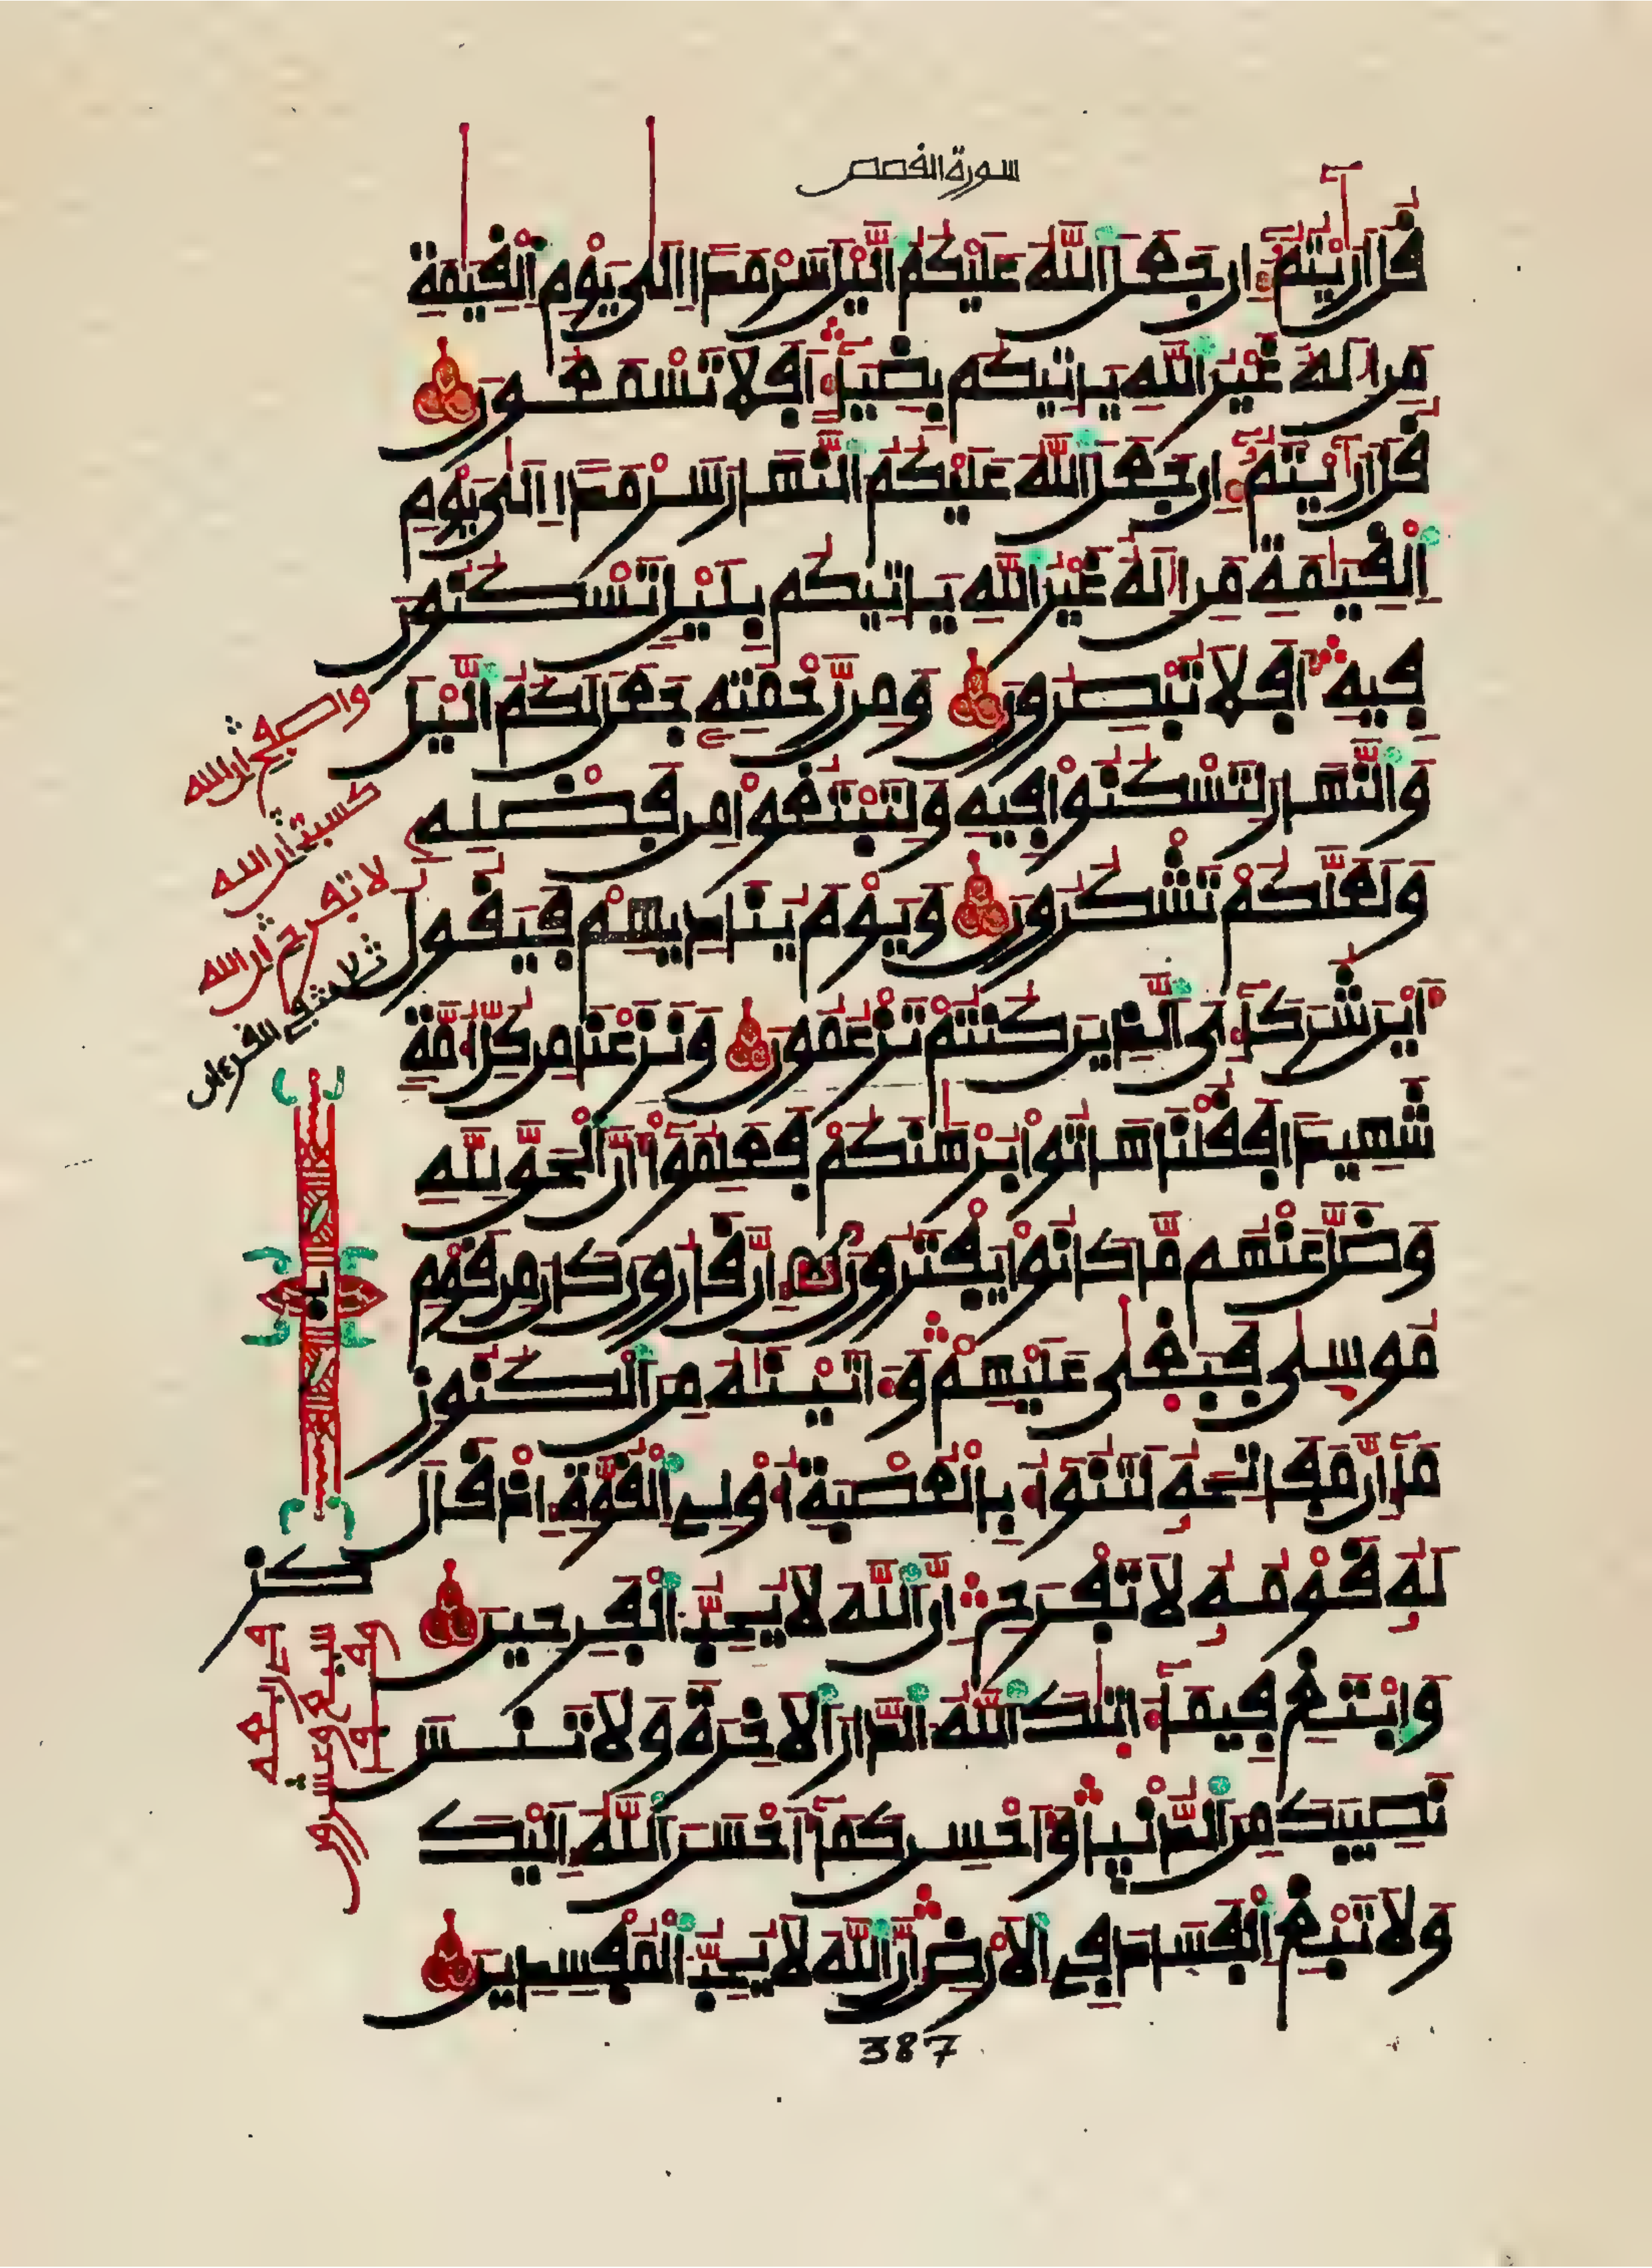 سورة القصص
قل اريتم ان جعل الله عليكم اليل سرمدا الى يوم القيمة
من اله غير الله ياتيكم بضيا افلا تسمعون
قل اريتم ان جعل الله عليكم النهار سرمدا الى يوم
القيمة من اله غير الله ياتيكم بليل تسكنون
فيه افلا تبصرون ومن رحمته جعل لكم اليل
والنهار لتسكنوا فيه ولتبتغوا من فضله
ولعلكم تشكرون ويوم يناديهم فيقول
اين شركاءى الذين كنتم تزعمون ونزعنا من كل امة
شهيدا فقلنا هاتوا برهنكم فعلموا ان الحق لله
وضل عنهم ما كانوا يفترون ان قارون كان من قوم
موسى فبغى عليهم وءاتينه من الكنوز
ما ان مفاتحه لتنوا بالعصبة اولى القوة اذ قال
له قومه لا تفرح ان الله لا يحب الفرحين
وابتغ فيما ءاتيك الله الدار الاخرة ولا تنس
نصيبك من الدنيا واحسن كما احسن الله اليك
ولا تبغ الفساد فى الارض ان الله لا يحب المفسدين
واصفح ان الله
كسبت ان الله
لا تفرح ان الله
ثلاث فى القرءان
387